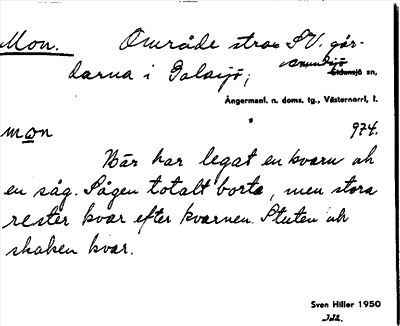 Mon. Område strax SV. går-
darna i Galasjö, Anundsjö
Sidensjö sn,
Ångermanl. n. doms. tg., Västernorrl. l.
mon 974.
Här har legat en kvarn ock
en såg. Sågen totalt borta, men stora
rester kvar efter kvarnen. Stuten ock
skaken kvar.
Sven Hiller 1950